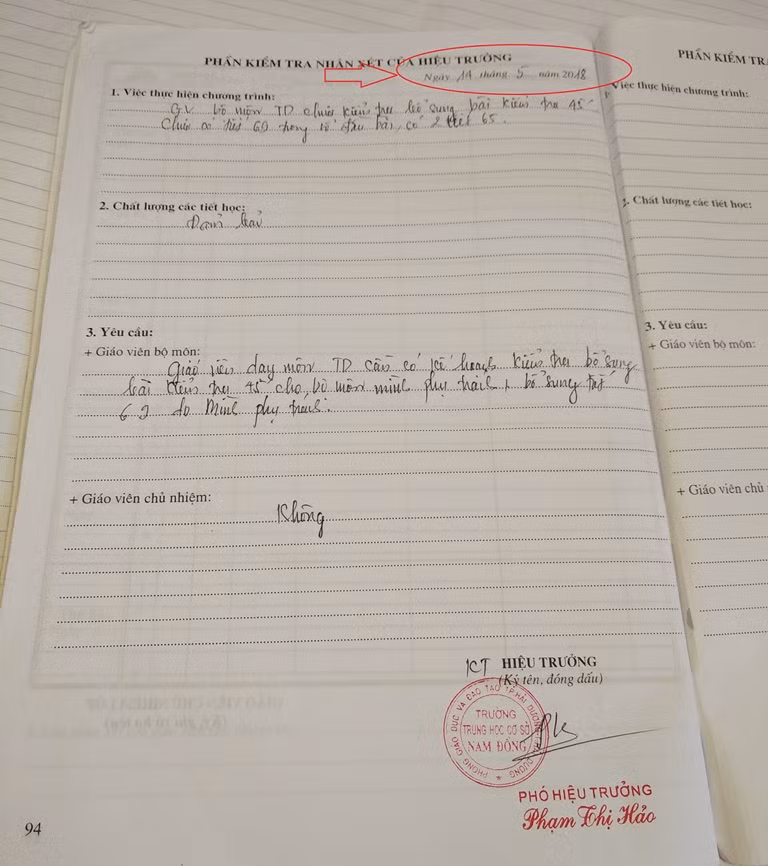 PHẦN KIỂM TRA NHẬN XÉT CỦA HIỆU TRƯỞNG
Ngày 14 tháng 5 năm 2018
1. Việc thực hiện chương trình:
GV bộ môn TD chưa kiểm tra bổ sung bài kiểm tra 45'
Chưa có tiết 69 trong sổ đầu bài, có 2 tiết 65.
2. Chất lượng các tiết học:
Đảm bảo
3. Yêu cầu:
+ Giáo viên bộ môn:
Giáo viên dạy môn TD cần có kế hoạch kiểm tra bổ sung
bài kiểm tra 45' cho bộ môn mình phụ trách, bổ sung tiết
69 do mình phụ trách.
+ Giáo viên chủ nhiệm:
Không
KT HIỆU TRƯỞNG
(Ký tên, đóng dấu)
PHÒNG GIÁO DỤC VÀ ĐÀO TẠO TP.HẢI DƯƠNG
TRƯỜNG
TRUNG HỌC CƠ SỞ
NAM ĐỒNG
PHÓ HIỆU TRƯỞNG
Phạm Thị Hảo
94
PHẦN KIỂM TRA
Việc thực hiện chương trình:
2. Chất lượng các tiết học:
3. Yêu cầu:
+ Giáo viên bộ môn:
+ Giáo viên chủ